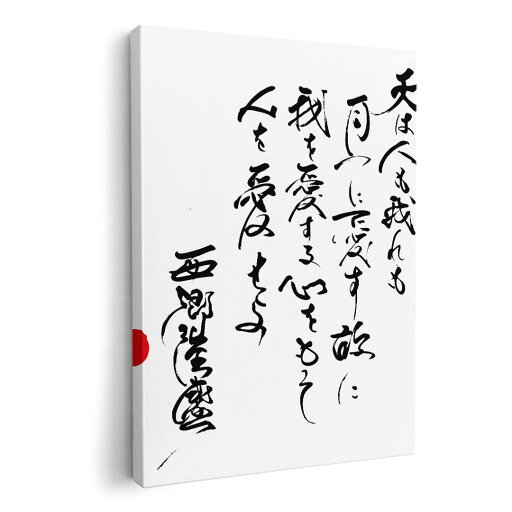 天は人も我れも
同一に愛す故に
我を愛する心をもて
人を愛せよ
西郷隆盛